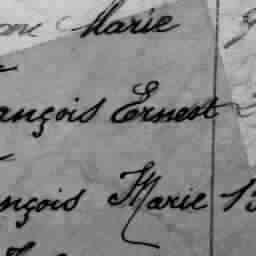 Marie
ançois Ernest
nçois Marie 13